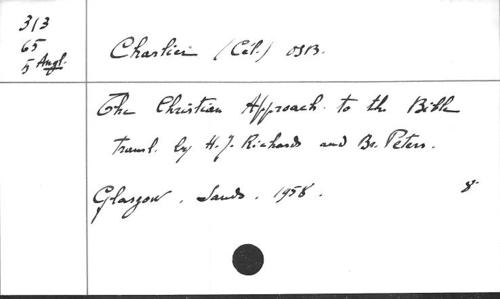 313
65
5 Angl.
Charlier (Cél.) OSB.
The Christian Approach to the Bible
transl. by H.J. Richards and Br. Peters.
Glasgow, Sands, 1958. 8°